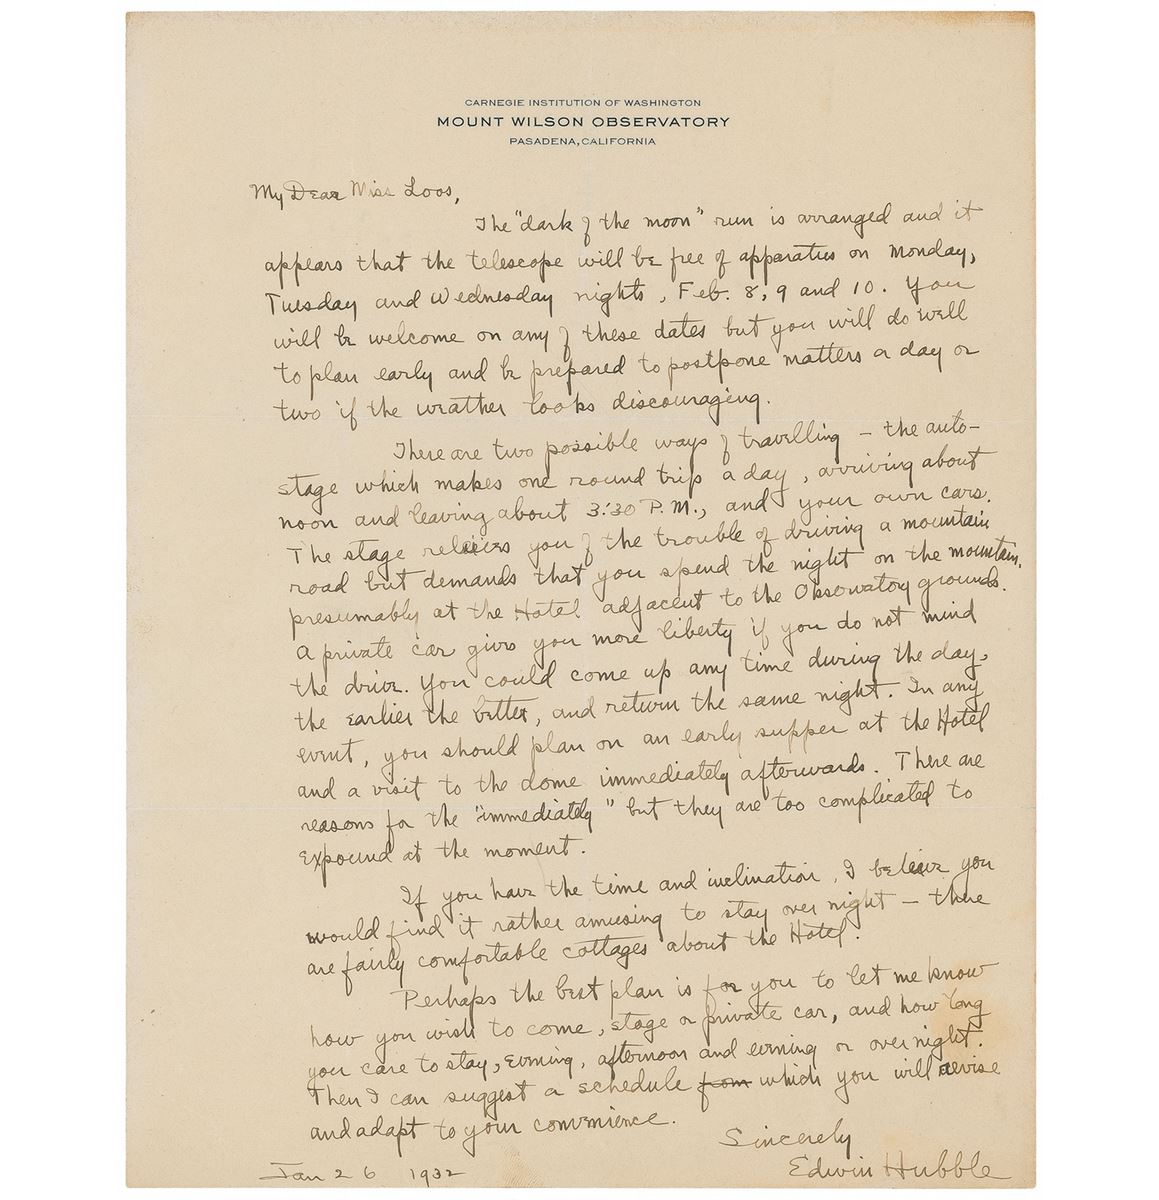 CARNEGIE INSTITUTION OF WASHINGTON
MOUNT WILSON OBSERVATORY
PASADENA, CALIFORNIA
My Dear Miss Loos,
The "dark of the moon" run is arranged and it
appears that the telescope will be free of apparatus on Monday,
Tuesday and Wednesday nights, Feb. 8, 9 and 10. You
will be welcome on any of these dates but you will do well
to plan early and be prepared to postpone matters a day or
two if the weather looks discouraging.
There are two possible ways of travelling – the auto-
stage which makes one round trip a day, arriving about
noon and leaving about 3:30 P.M., and your own cars.
The stage relieves you of the trouble of driving a mountain
road but demands that you spend the night on the mountain,
presumably at the Hotel adjacent to the Observatory grounds.
A private car gives you more liberty if you do not mind
the drive. You could come up any time during the day,
the earlier the better, and return the same night. In any
event, you should plan on an early supper at the Hotel
and a visit to the dome immediately afterwards. There are
reasons for the "immediately" but they are too complicated to
expound at the moment.
If you have the time and inclination, I believe you
would find it rather amusing to stay over night – there
are fairly comfortable cottages about the Hotel.
Perhaps the best plan is for you to let me know
how you wish to come, stage or private car, and how long
you care to stay, evening, afternoon and evening or over night.
Then I can suggest a schedule from which you will revise
and adapt to your convenience.
Sincerely
Edwin Hubble
Jan 26 1932